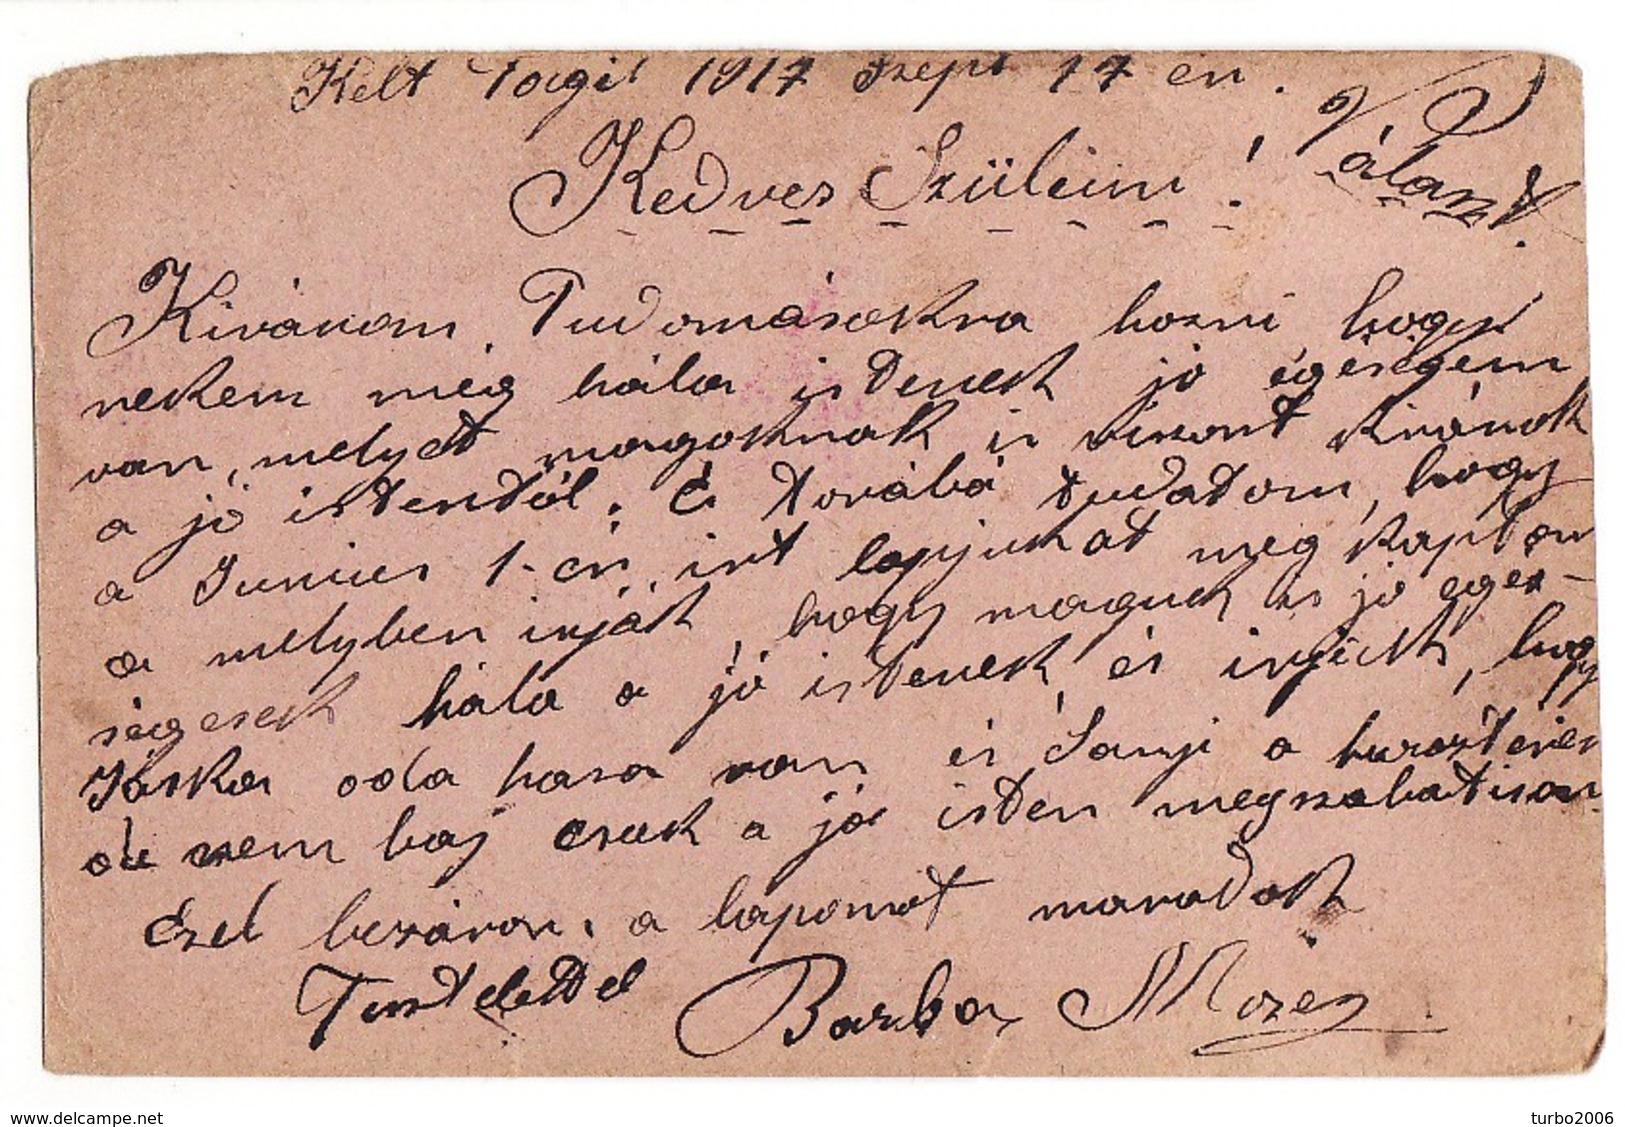 Kelt Tagil 1917 Szept 17 én.
Kedves Szüleim!
Választ.
Kivánom Tudomásokra hozni hogy
nekem még hála istenek jó égeségem
van, melyet magoknak is viszont kivánok
a jó istentöl. És továbá tudatom, hogy
a Junius 1-én irt lapjukat meg kaptam
a melyben irják, hogy maguk is jó eges-
ségesek hála a jó istenek, és irják, hogy
Jóska oda haza van és Sanyi a harcztéren
de nem baj csak a jó isten megszabatison
Ezel bezárom a lapomat maradok
Tisztelettel Barba Mozes
www.delcampe.net
turbo2006